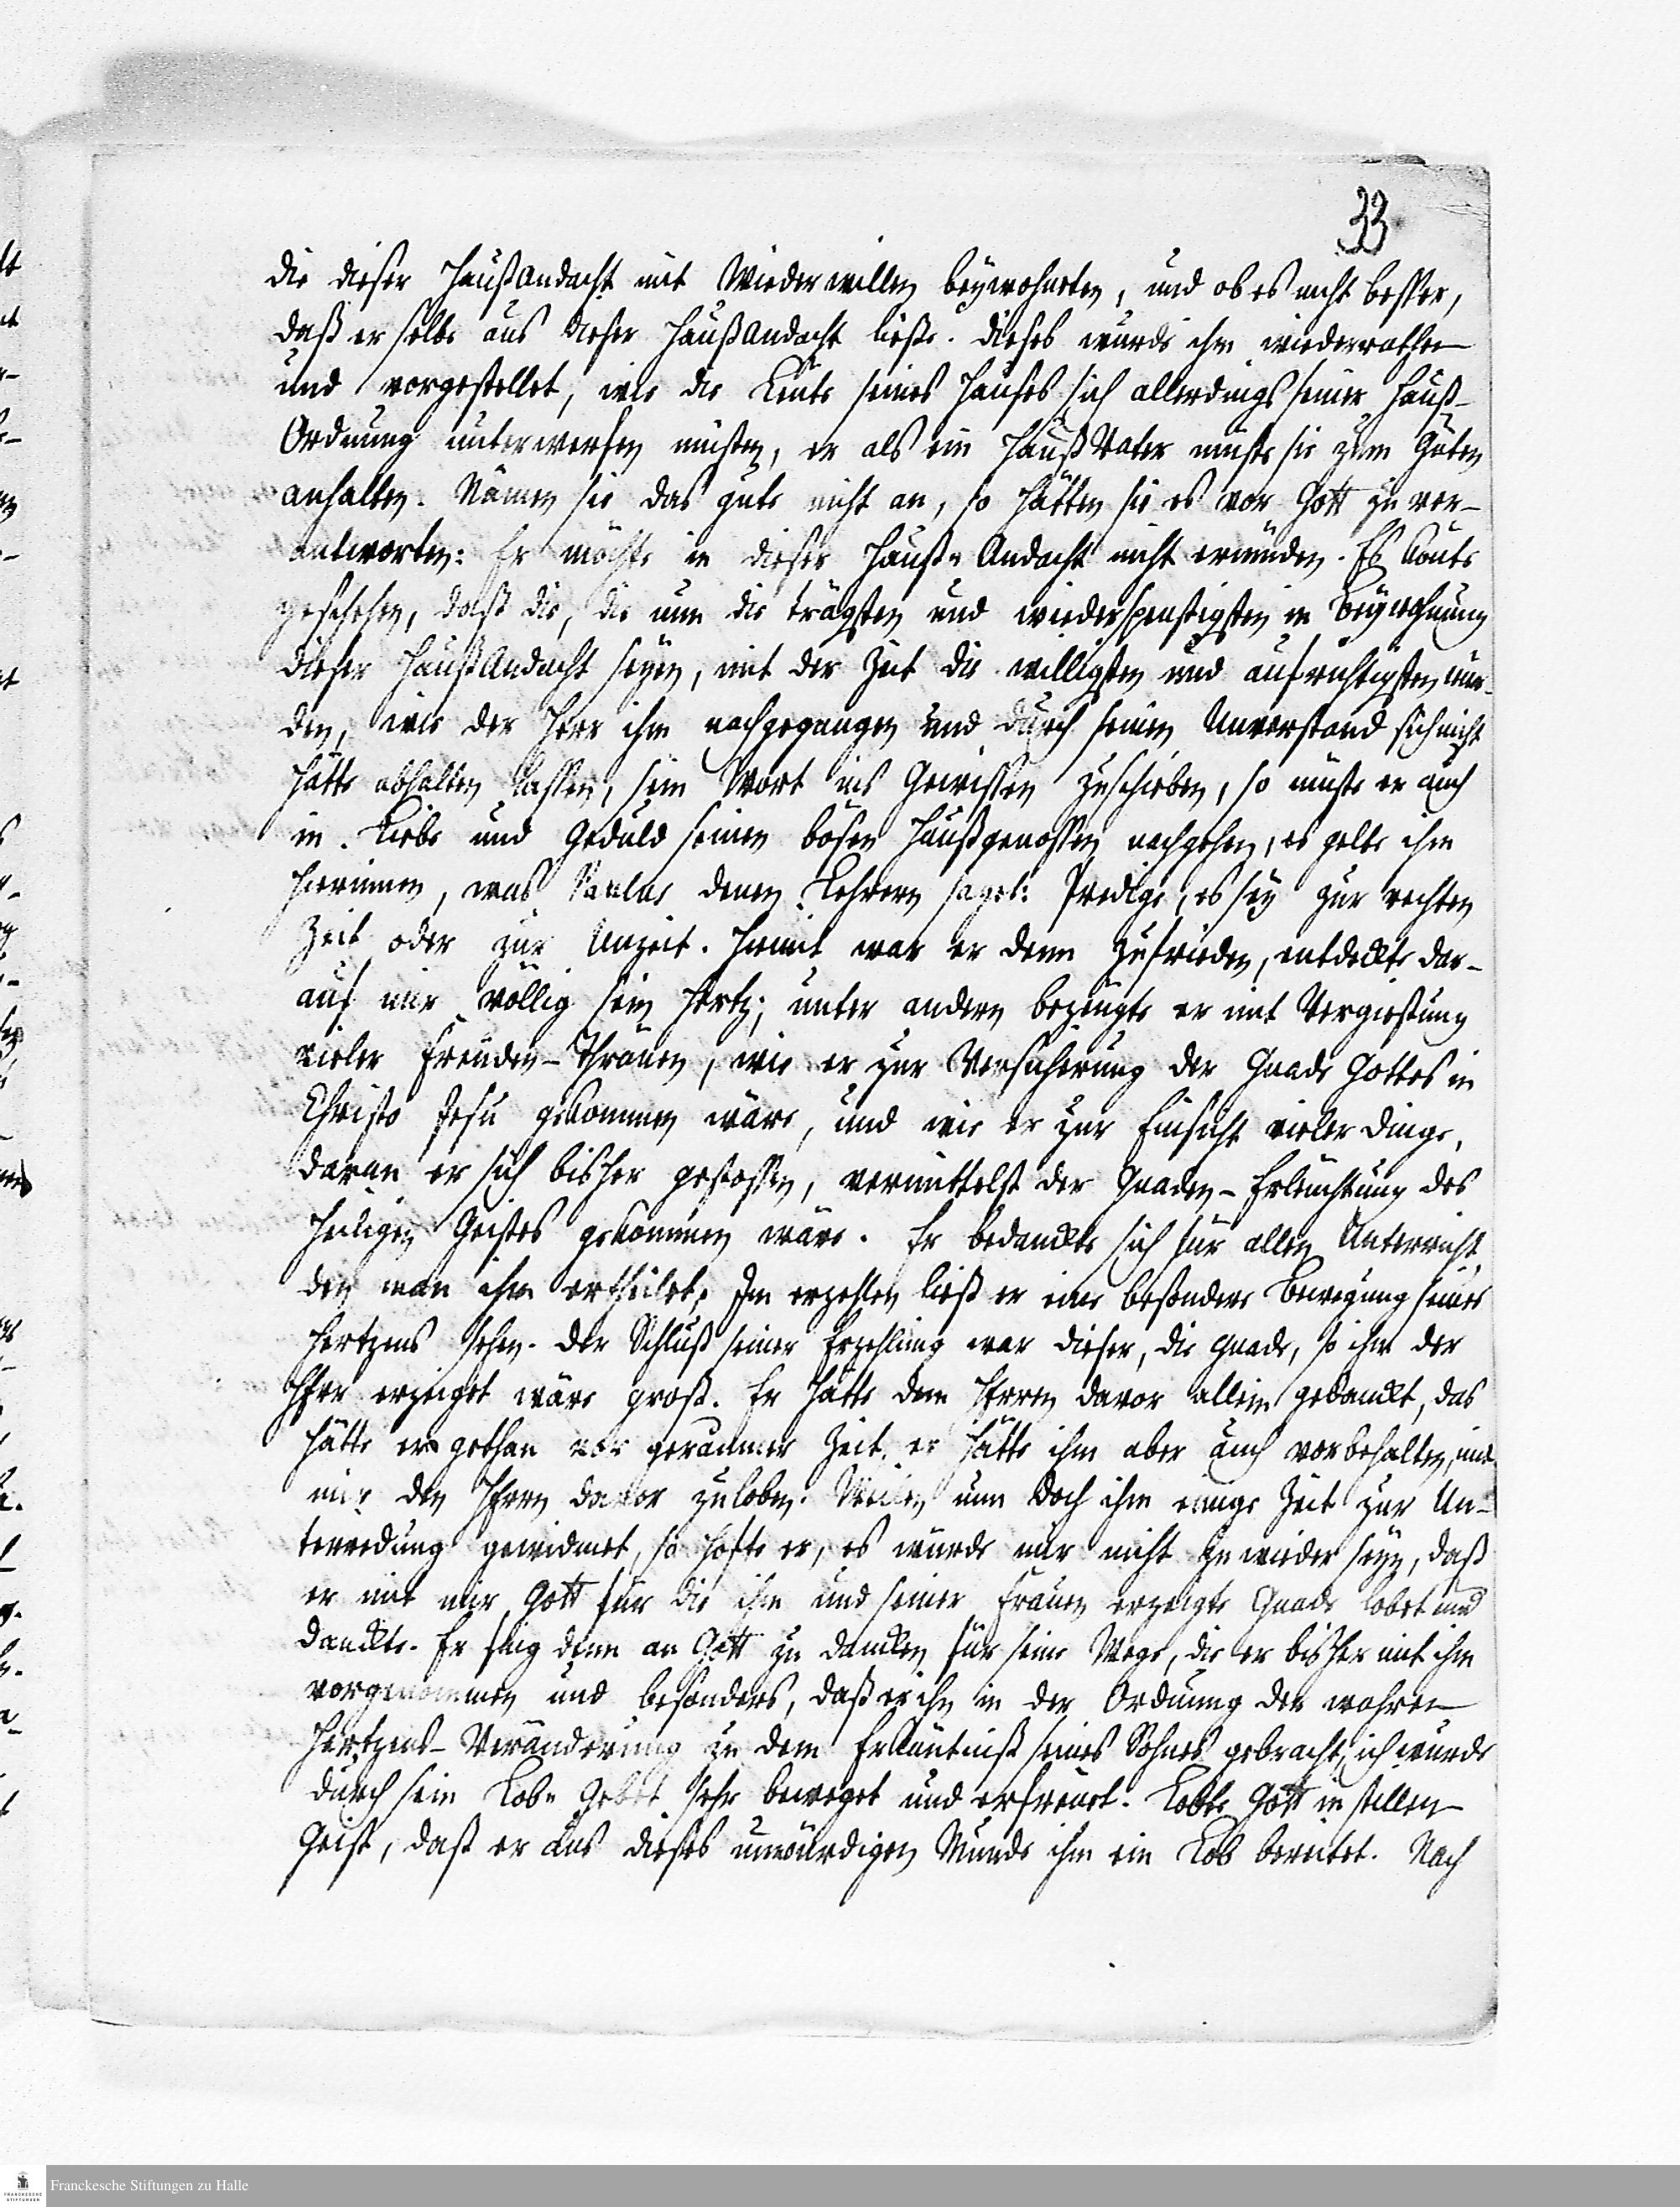 33
die dieser Haußandacht mit Wiederwillen beywohneten, und ob es nicht besser,
daß er selbe aus dieser Haußandacht ließe. Dieses wurde ihm wiederrathen
und vorgestellet, wie die Leute seines Hauses sich allerdings seiner Hauß-
Ordnung unterwerfen müsten, er als ein Hauß Vater müste sie zum Guten
anhalten. Nämen sie das gute nicht an, so hätten sie es vor Gott zu ver-
antworten: Er möchte in dieser Hauß- Andacht nicht ermüden. Es könte
geschehen, daß die, die nun die trägsten und wiederspenstigsten in Beywohnung
dieser Haußandacht seyen, mit der Zeit die willigsten und aufrichtigsten wür-
den, wie der Herr ihm nachgegangen und durch seinen Unverstand sich nicht
hätte abhalten lassen, sein Wort ins Gewissen zuschieben, so müste er auch
in Liebe und Geduld seinen bösen Haußgenossen nachgehen, es gelte ihm
hierinnen, was Paulus denen Lehrern saget: Predige, es sey zur rechten
Zeit oder zur Unzeit. Hiemit war er denn zufrieden, entdeckte dar-
auf mir völlig sein Hertz; unter andern bezeugte er mit Vergießung
vieler Freuden-Thränen, wie er zur Versicherung der Gnade Gottes in
Christo Jesu gekommen wäre, und wie er zur Einsicht vieler Dinge,
daran er sich bisher gestossen, vermittelst der Gnaden-Erleuchtung des
Heiligen Geistes gekommen wäre. Er bedanckte sich für allen Unterricht,
den man ihm ertheilet, Im erzehlen ließ er eine besondere Bewegung seines
Hertzens sehen. Der Schluß seiner Erzehlung war dieser, die Gnade, so ihm der
HErr erzeiget wäre groß. Er hätte dem HErrn davor allein gedanckt, das
hätte er gethan vor geraumer Zeit, er hätte ihm aber auch vorbehalten, mit
mir den HErrn davor zuloben. Weilen nun doch ihm einige Zeit zur Un-
terredung gewidmet, so hofte er, es würde mir nicht zu wieder seyn, daß
er mit mir Gott für die ihm und seiner Frauen erzeigte Gnade lobet und
danckte. Er fing denn an Gott zu dancken für seine Wege, die er bisher mit ihm
vorgenommen und besonders, daß er ihn in der Ordnung der wahren
Hertzens-Veränderung zu dem Erkäntniß seines Sohnes gebracht, ich wurde
durch sein Lob- Gebet sehr beweget und erfreuet. Lobte Gott in stillen
Geist, daß er aus dieses unwürdigen Munde ihm ein Lob bereitet. Nach
Franckesche Stiftungen zu Halle